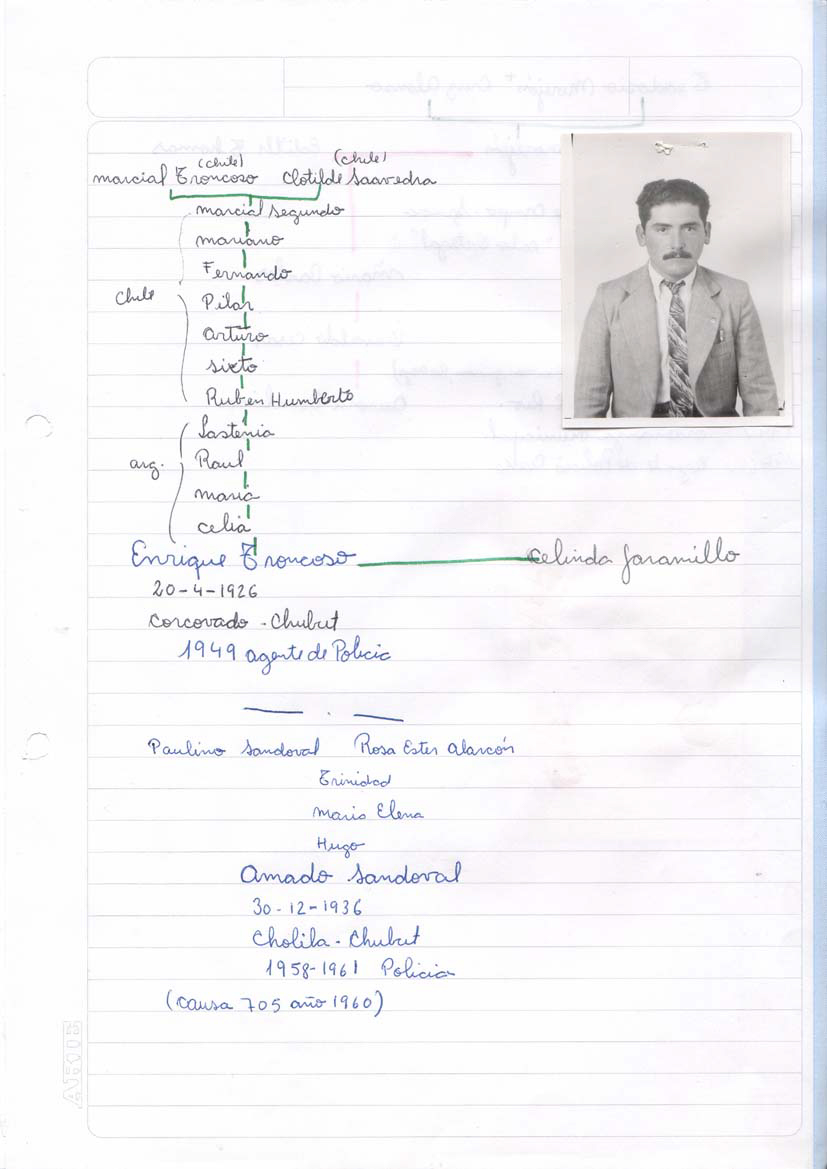 (chile) (chile)
marcial Troncoso Clotilde Saavedra
marcial segundo
mariano
Fernando
chile
Pilar
arturo
sixto
Ruben Humberto
Lastenia
arg.
Raul
maria
celia
Enrique Troncoso celinda Jaramillo
20-4-1926
corcovado - Chubut
1949 agente de Policia
Paulino Sandoval Rosa Ester alarcón
Trinidad
Maria Elena
Hugo
Amado Sandoval
30-12-1936
Cholila - Chubut
1958-1961 Policia
(causa 705 año 1960)
ARTE